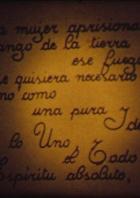 a mujer aprisiona
ango de la tierra
ese fueg
e quisiera necesario
no como
una pura Id
lo Uno
el Todo
Espíritu absoluto,